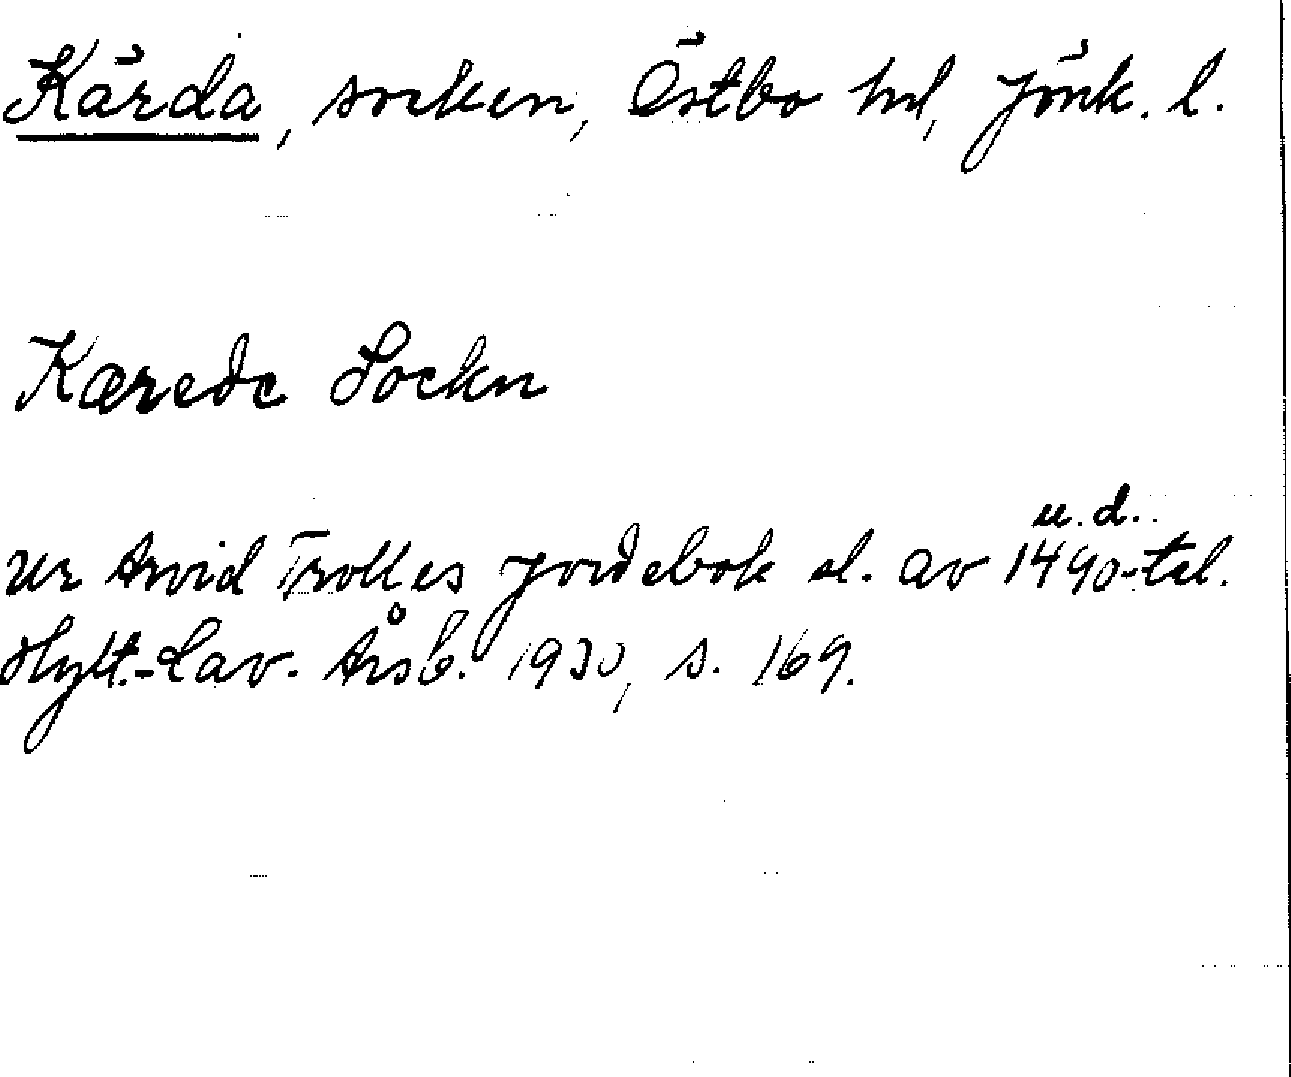 Kärda, socken, Östbo hd, Jönk. l.
Kærede Sockn
u.d.
Ur Arvid Trolles jordebok sl. av 1490-tal.
Hylt.-Cav. Årsb. 1930, s. 169.